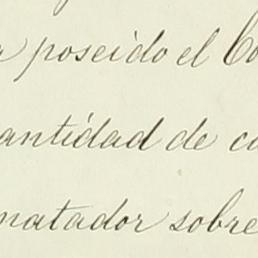 poseido el
antidad de
matador sobre